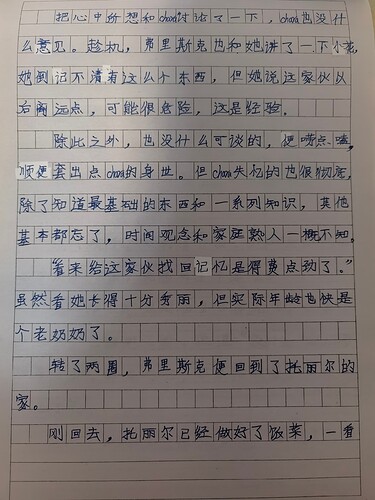 把心中所想和chara讨论了一下，chara也没什
么意见。趁机，弗里斯克也和她讲了一下小花，
她倒记不清有这么个东西，但她说这家伙以
后离远点，可能很危险，这是经验。
除此之外，也没什么可谈的，便唠点嗑，
顺便套出点chara的身世。但chara失忆的也很彻底，
除了知道最基础的东西和一系列知识，其他
基本都忘了，时间观念和家庭熟人一概不知。
“看来给这家伙找回记忆是得费点劲了。”
虽然看她长得十分秀丽，但实际年龄也快是
个老奶奶了。
转了两周，弗里斯克便回到了托丽尔的
家。
刚回去，托丽尔已经做好了饭菜，一看